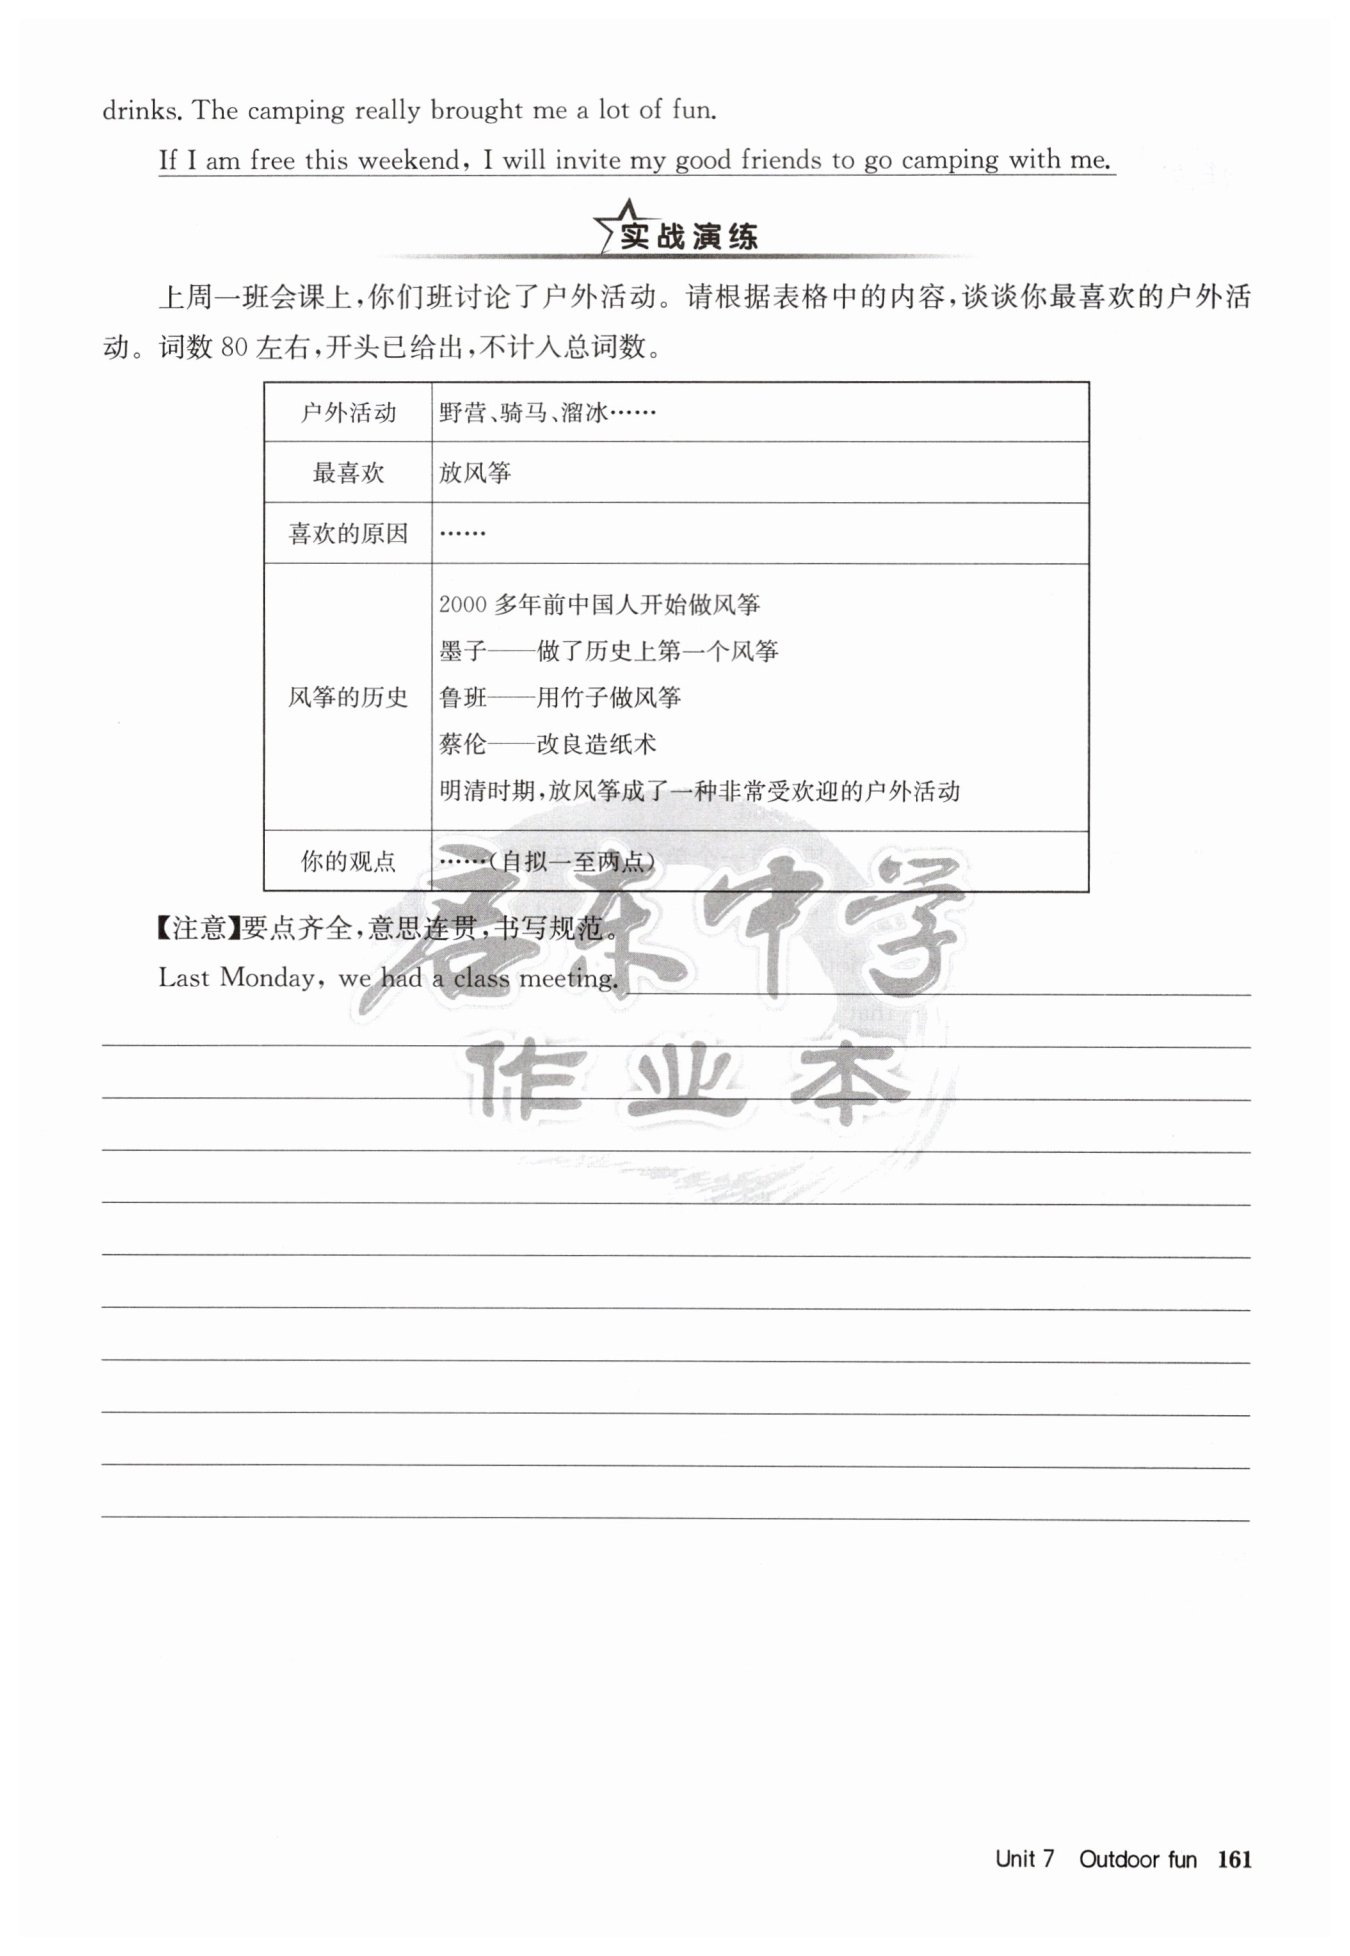 drinks. The camping really brought me a lot of fun.
If I am free this weekend, I will invite my good friends to go camping with me.
实战演练
上周一班会课上,你们班讨论了户外活动。请根据表格中的内容,谈谈你最喜欢的户外活
动。词数 80 左右,开头已给出,不计入总词数。
户外活动 野营、骑马、溜冰……
最喜欢 放风筝
喜欢的原因 ……
2000 多年前中国人开始做风筝
墨子——做了历史上第一个风筝
风筝的历史 鲁班——用竹子做风筝
蔡伦——改良造纸术
明清时期,放风筝成了一种非常受欢迎的户外活动
你的观点 ……(自拟一至两点)
【注意】要点齐全,意思连贯,书写规范。
Last Monday, we had a class meeting.
启东中学
作业本
Unit 7 Outdoor fun 161